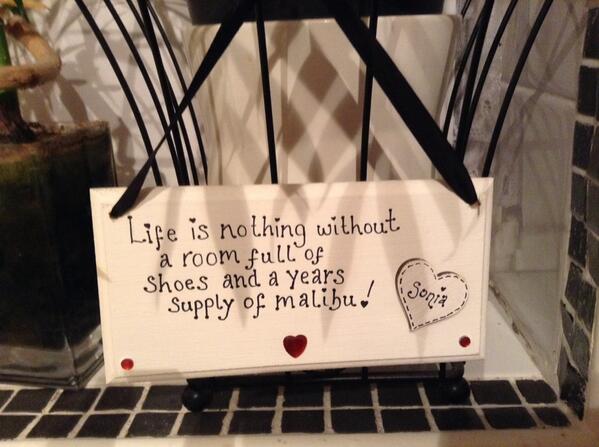 Life is nothing without
a room full of
shoes and a years
supply of malibu!
Sonia